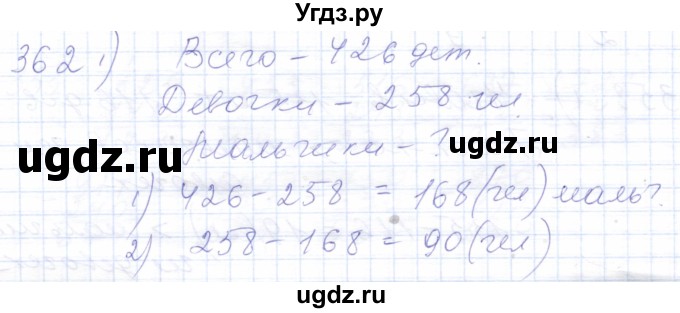 Угдз.ру
362 1) Всего – 426 дет.
Девочки – 258 чел
ugdz.ru ugdz.ru
Мальчики – ?
1) 426 – 258 = 168 (чел) мальч.
2) 258 – 168 = 90 (чел)
ugdz.ru ugdz.ru
ugdz.ru